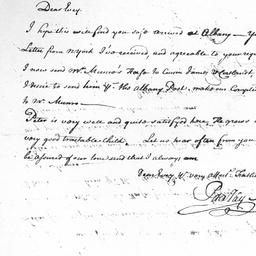 Dear Evey.
I hope this will find you safe arrived at Albany — Yo
Letter from NYork I've received, and agreeable to your req
I now send Mr. Munro's to Cousin James
I desire to send him by the Albany Post. make our Complim
to Mr Munro —
Peter is very well and quite satisfied here, He grows a
very good tractable Child. Let us hear often from you
be assured of our love and that I always am
Dear Evey Yr. very affect. Father
Peter Jay